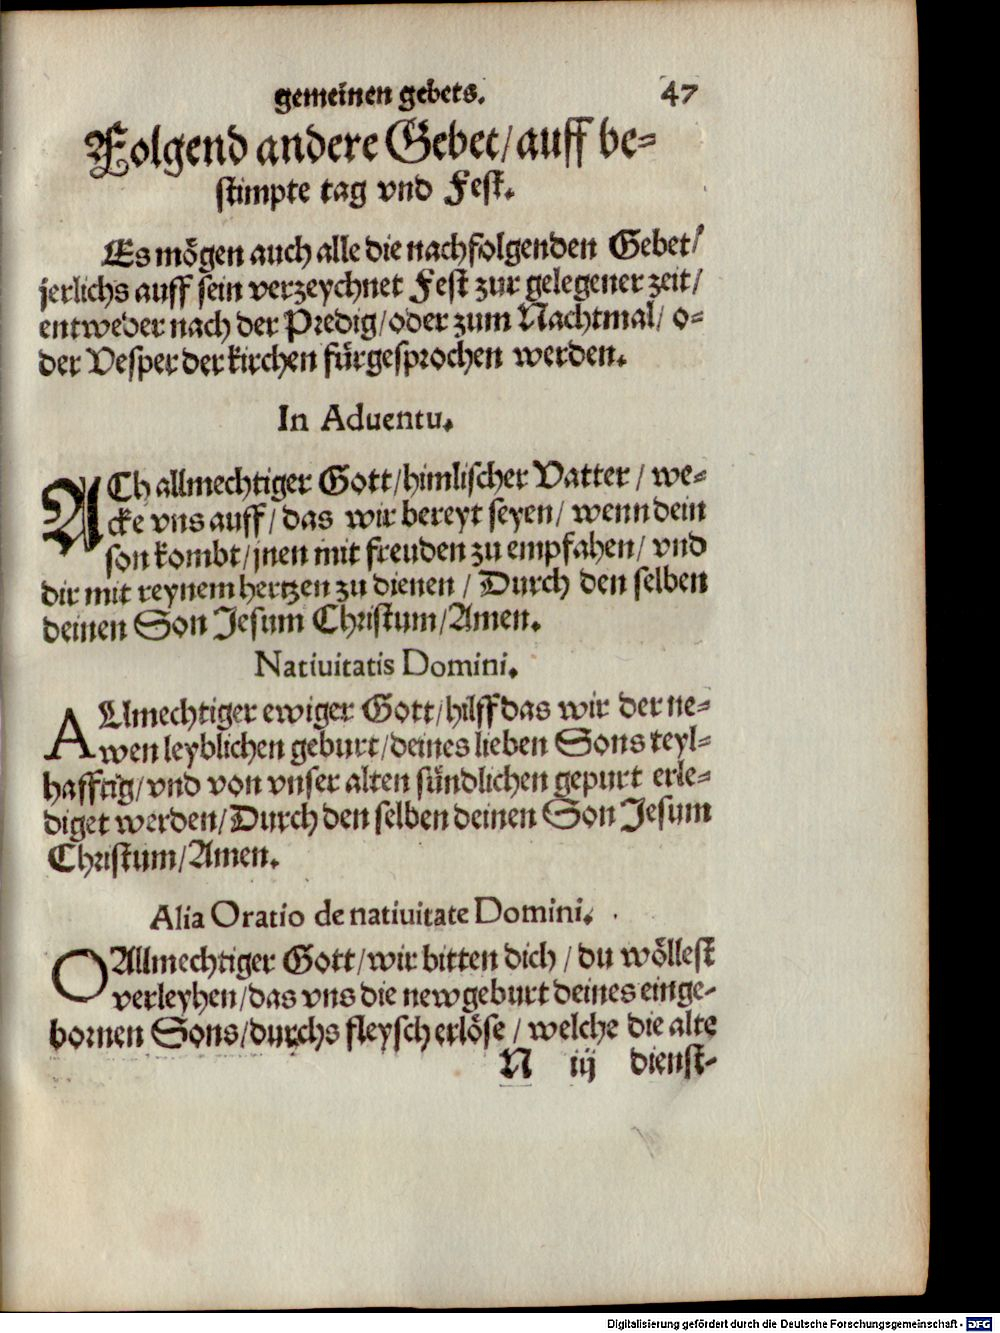 gemeinen gebets. 47
Folgend andere Gebet/ auff be-
stimpte tag vnd Fest.
Es mögen auch alle die nachfolgenden Gebet/
jerlichs auff sein verzeychnet Fest zur gelegener zeit/
entweder nach der Predig/ oder zum Nachtmal/ o-
der Vesper der kirchen fürgesprochen werden.
In Aduentu.
ACh allmechtiger Gott/ himlischer Vatter / we-
cke vns auff/ das wir bereyt seyen/ wenn dein
son kombt/ jnen mit freuden zu empfahen/ vnd
dir mit reynem hertzen zu dienen / Durch den selben
deinen Son Jesum Christum/ Amen.
Natiuitatis Domini.
ALlmechtiger ewiger Gott/ hilff das wir der ne-
wen leyblichen geburt/ deines lieben Sons teyl-
hafftig/ vnd von vnser alten sündlichen gepurt erle-
diget werden/ Durch den selben deinen Son Jesum
Christum/ Amen.
Alia Oratio de natiuitate Domini.
O Allmechtiger Gott/ wir bitten dich / du wöllest
verleyhen/ das vns die new geburt deines einge-
bornen Sons/ durchs fleysch erlöse / welche die alte
N iij dienst-
Digitalisierung gefördert durch die Deutsche Forschungsgemeinschaft - DFG